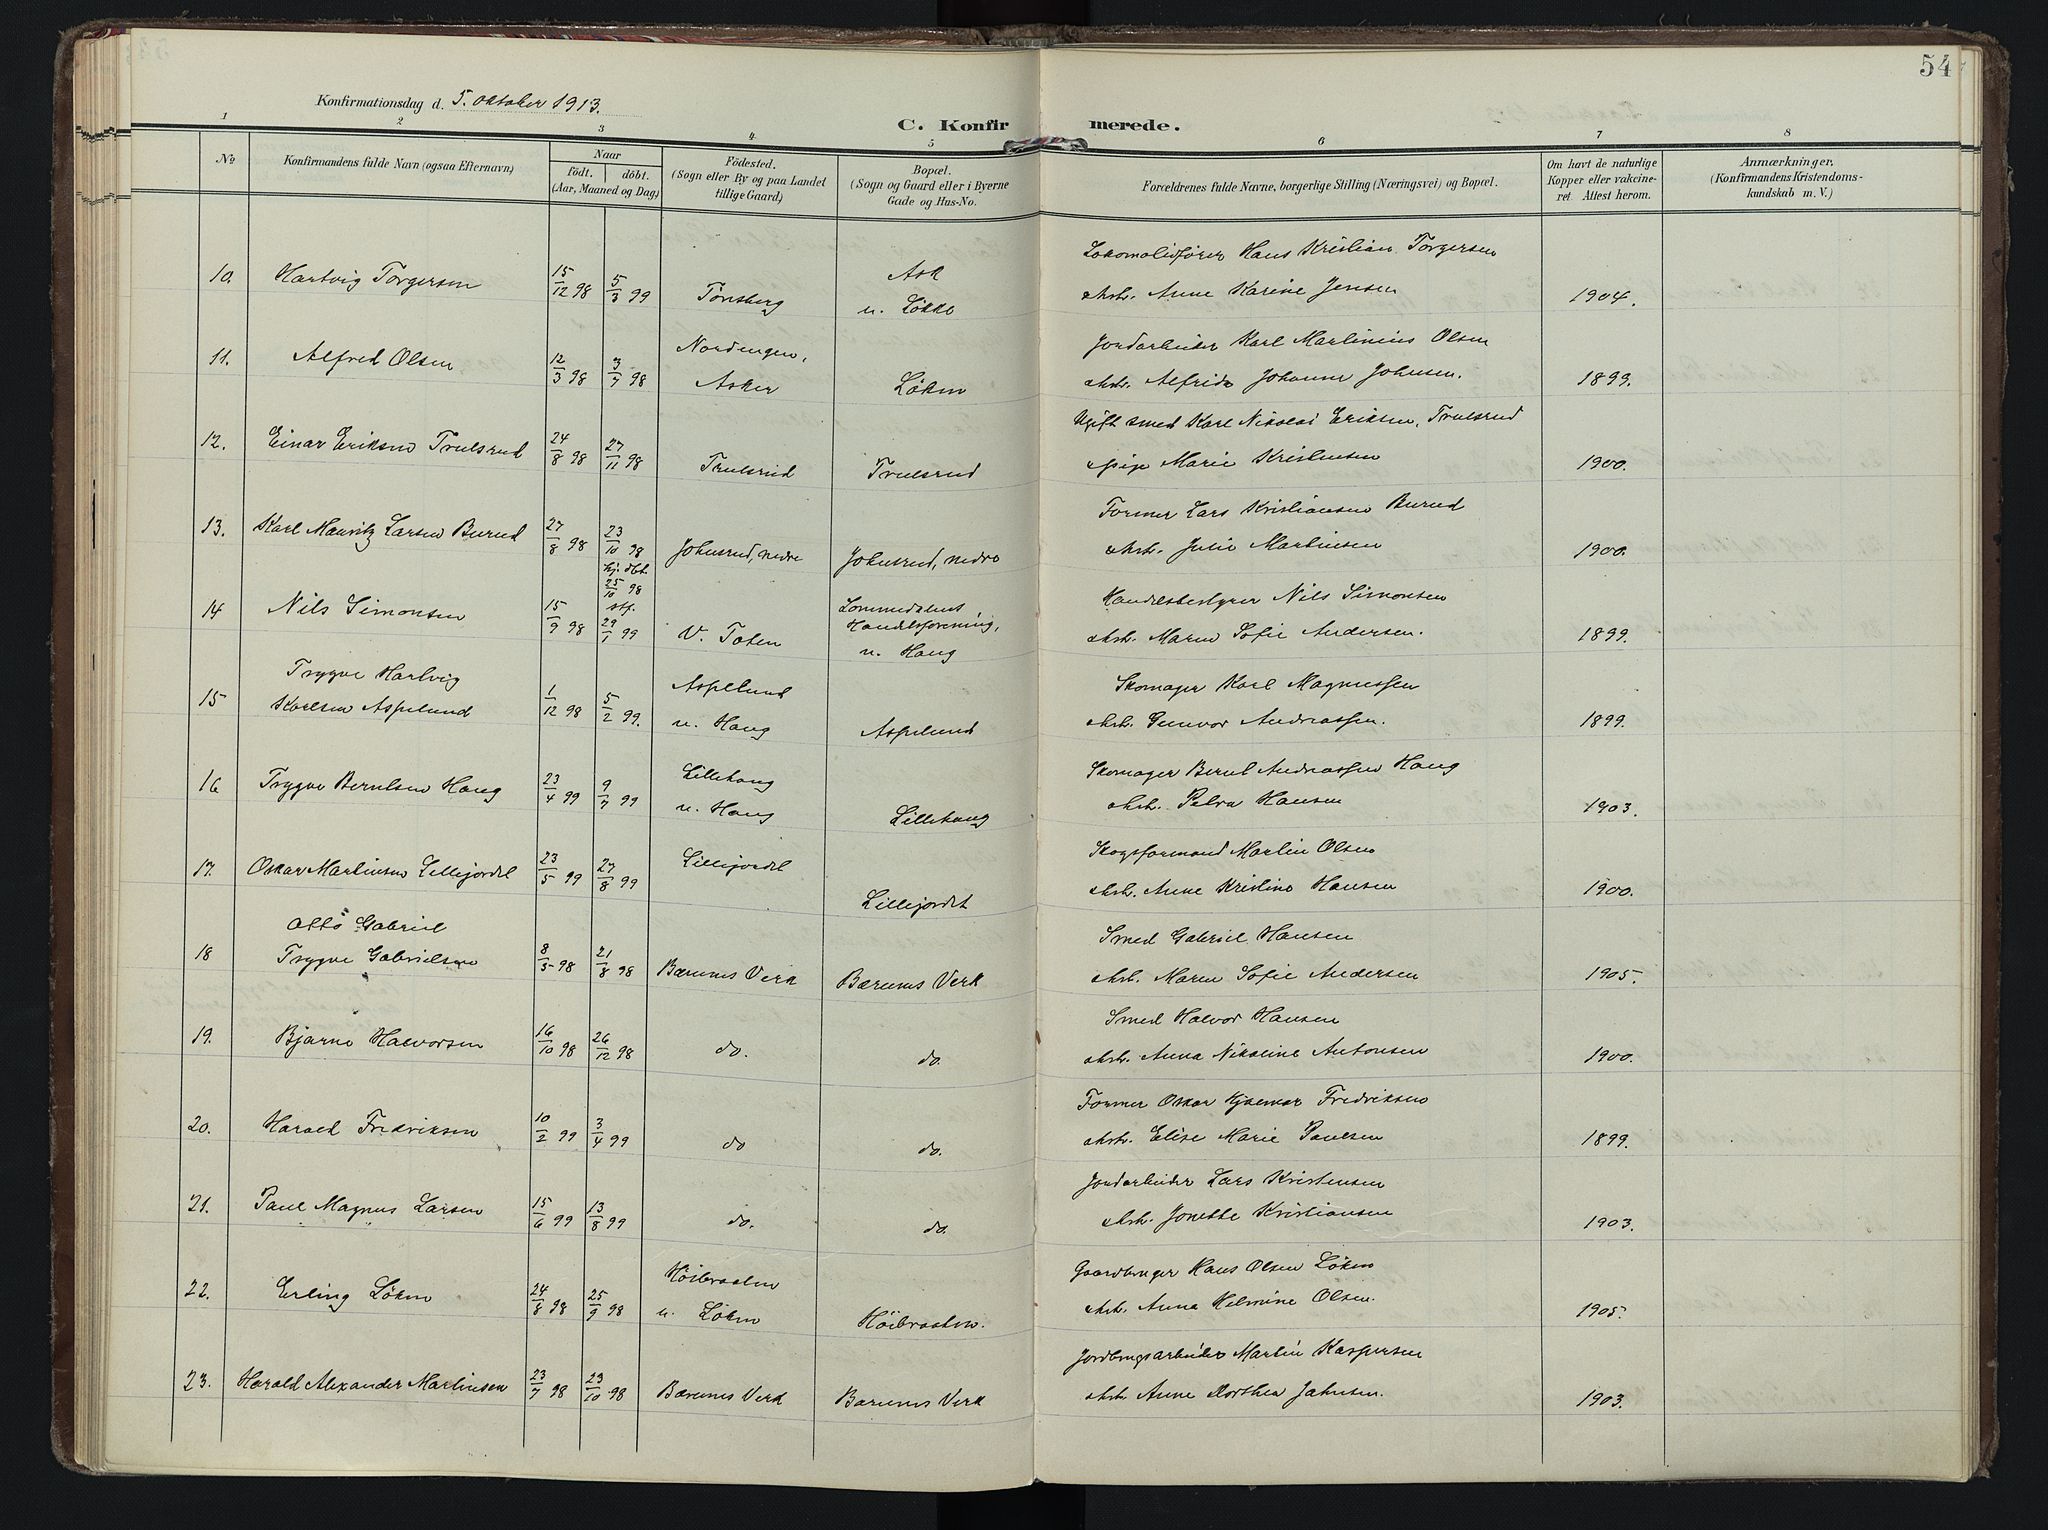 54
Konfirmationsdag d. 5. oktober 1913.
C. Konfirmerede.
1 2 3 4 5 6 7 8
No
Konfirmandens fulde Navn (ogsaa Efternavn)
Naar
födt. döbt.
(Aar, Maaned og Dag)
Födested.
(Sogn eller By og paa Landet
tillige Gaard)
Bopæl.
(Sogn og Gaard eller i Byerne
Gade og Hus-No.
Forældrenes fulde Navne, borgerlige Stilling (Næringsvei) og Bopæl.
Om havt de naturlige
Kopper eller vakcine-
ret. Attest herom.
Anmærkninger.
(Konfirmandens Kristendoms-
kundskab m. V.)
Ask Lokomotivfører Hans Kristian Torgersen
10. Hartvig Torgersen 15/12 98 5/3 99 Tönsberg u. Løkke Anne Karine Jensen 1904.
Nordengen, Jordarbeider Karl Martinius Olsen
11. Alfred Olsen 12/3 98 3/7 98 Asker Løken Alfride Johanne Johnsen. 1899.
Ugift smed Karl Nikolai Eriksen, Trulsrud
12. Einar Eriksen Trulsrud 24/8 98 27/11 98 Trulsrud Trulsrud pige Marie Kristensen 1900.
Former Lars Kristiansen Burud
13. Karl Mauritz Larsen Burud 27/8 98 23/10 98 Johnsrud, nedre Johnsrud, nedre Julie Martinsen 1900.
hj. dbt.
25/10 98 Lommedalens Handelsbestyrer Nils Simonsen
14 Nils Simonsen 15/9 98 stf. 29/1 99 V. Toten Handelsforening, Maren Sofie Andersen. 1899.
u. Haug
Trygve Hartvig Aspelund Skomager Karl Magnussen
15 Karlsen Aspelund 1/12 98 5/2 99. u. Haug Aspelund Gunvor Andreassen. 1899.
Lillehaug Skomager Bernt Andreassen Haug
16 Trygve Berntsen Haug 23/4 99 9/7 99 u. Haug Lillehaug Petra Hansen 1903.
Skogsformand Martin Olsen
17. Oskar Martinsen Lillejordet 23/5 99 27/8 99 Lillejordet Lillejordet Anne Kristine Hansen 1900.
Otto Gabriel Smed Gabriel Hansen
18 Trygve Gabrielsen 8/5 98 21/8 98 Bærums Verk Bærums Verk Maren Sofie Andersen 1905.
Smed Halvor Hansen
19. Bjarne Halvorsen 16/10 98 26/12 98 do. do. Anna Nikoline Antonsen 1900.
Former Oskar Hjalmar Fredriksen
20. Harald Fredriksen 10/2 99 3/4 99 do do. Elise Marie Paulsen 1899.
Jordarbeider Lars Kristensen
21. Paul Magnus Larsen 15/6 99 13/8 99 do. do. Jonette Kristiansen 1903.
Höibraaten Gaardbruger Hans Olsen Løken
22. Erling Løken 24/8 98 25/9 98 u. Løken Höibraaten. Anna Helmine Olsen. 1905.
Jordbrugsarbeider Martin Kaspersen
23. Harald Alexander Martinsen 23/7 98 23/10 98 Bærums Verk Bærums Verk Anne Dorthea Jahnsen. 1903.